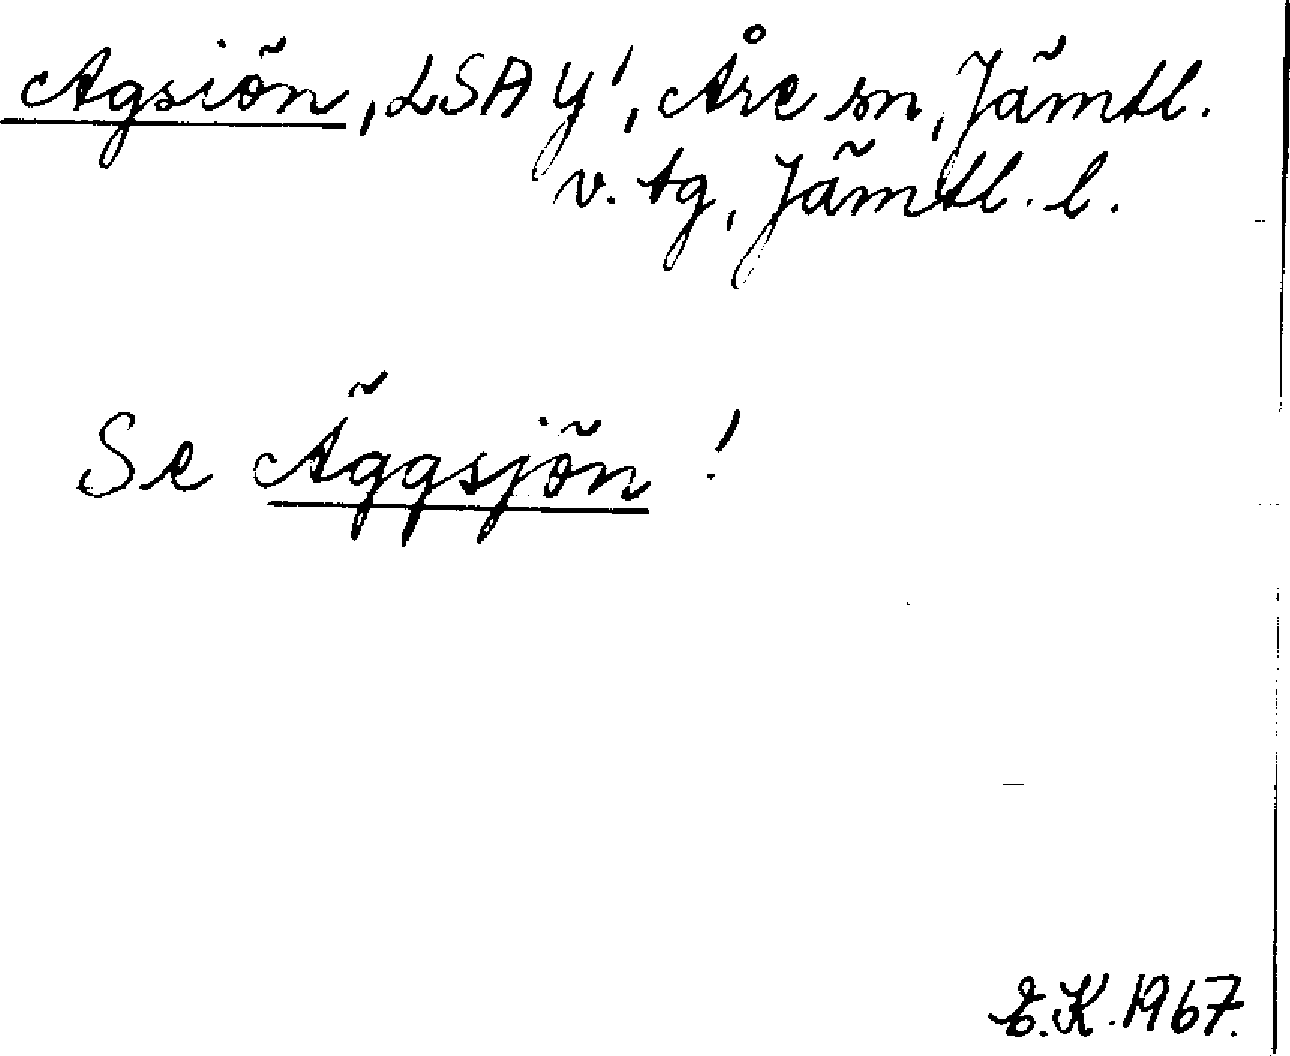 Agsiön, LSA Y', Åre sn, Jämtl.
v. tg, Jämtl. l.
Se Äggsjön !
E.K. 1967.